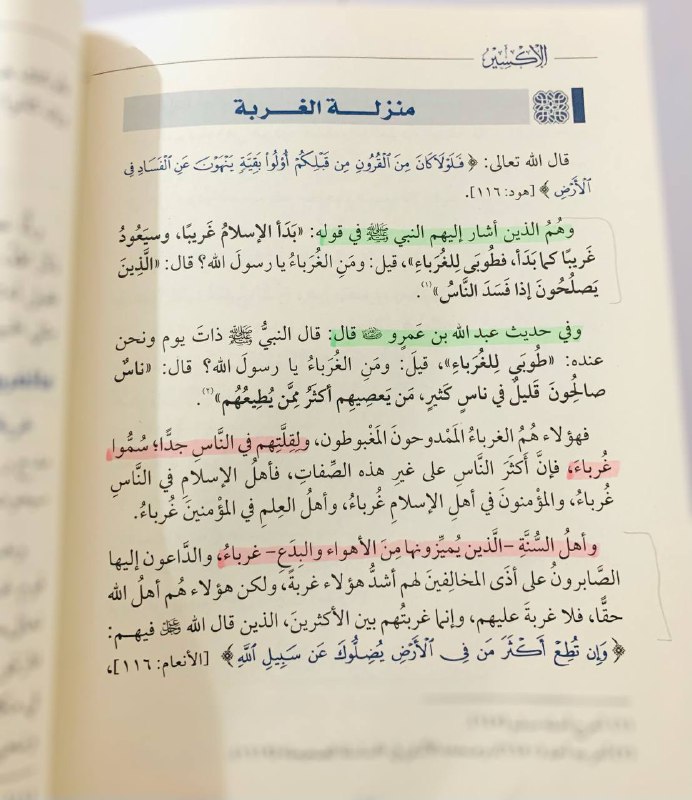 الإكسير
منزلة الغربة
قال الله تعالى: ﴿فَلَوْلَا كَانَ مِنَ الْقُرُونِ مِن قَبْلِكُمْ أُوْلُوا بَقِيَّةٍ يَنْهَوْنَ عَنِ الْفَسَادِ فِي
الْأَرْضِ﴾ [هود: ١١٦].
وهُمُ الذين أشار إليهم النبي ﷺ في قوله: «بَدَأ الإسلامُ غَريبًا، وسيَعُودُ
غَريبًا كما بَدَأ، فطُوبَى لِلغُرَباءِ»، قيل: ومَنِ الغُرَباءُ يا رسولَ الله؟ قال: «الَّذِينَ
يَصلُحُونَ إذا فَسَدَ النَّاسُ»(١).
وفي حديث عبد الله بن عَمرٍو ﵁ قال: قال النبيُّ ﷺ ذاتَ يوم ونحن
عنده: «طُوبَى لِلغُرَباءِ»، قيلَ: ومَنِ الغُرَباءُ يا رسولَ الله؟ قال: «ناسٌ
صالِحُونَ قَليلٌ في ناسٍ كَثيرٍ، مَن يَعصِيهِم أكثَرُ مِمَّن يُطِيعُهُم»(٢).
فهؤلاء هُمُ الغرباءُ المَمْدوحونَ المَغْبوطون، ولِقِلَّتِهم في النَّاسِ جدًّا؛ سُمُّوا
غُرباءَ، فإنَّ أكثَرَ النَّاسِ على غيرِ هذه الصِّفاتِ، فأهلُ الإسلامِ في النَّاسِ
غُرباءُ، والمؤمنونَ في أهلِ الإسلامِ غُرباءُ، وأهلُ العِلمِ في المؤمنينَ غُرباءُ.
وأهلُ السُّنَّةِ -الَّذين يُميِّزونها مِنَ الأهواء والبِدَعِ- غرباءُ، والدَّاعون إليها
الصَّابرونُ على أذَى المخالفِينَ لهم أشدُّ هؤلاء غربةً، ولكن هؤلاء هُم أهلُ الله
حقًّا، فلا غربةَ عليهم، وإنما غربتُهم بين الأكثرينَ، الذين قال الله ﷻ فيهم:
﴿وَإِن تُطِعْ أَكْثَرَ مَن فِي الْأَرْضِ يُضِلُّوكَ عَن سَبِيلِ اللَّهِ﴾ [الأنعام: ١١٦]،